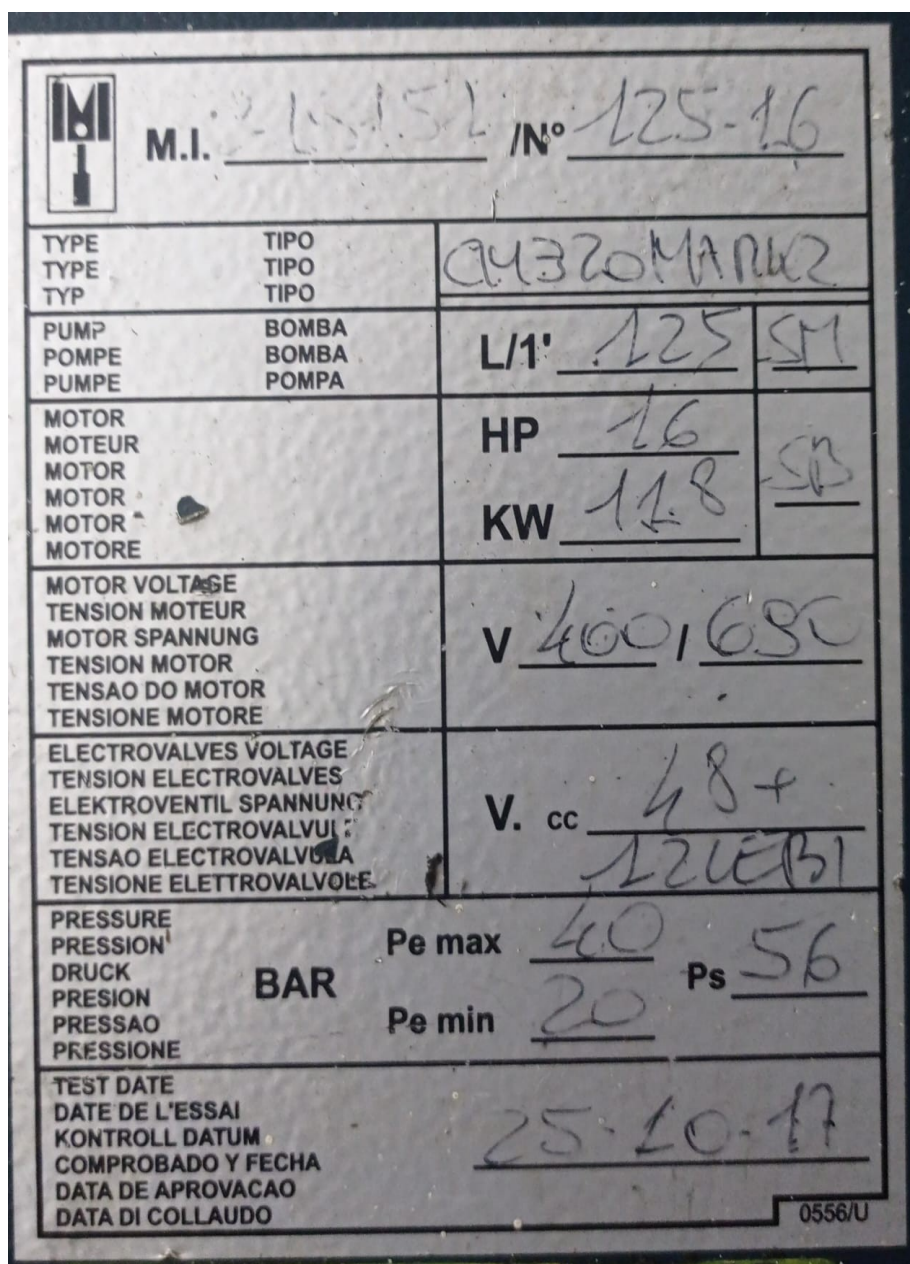 M.I. /Nº 125-16
TYPE TIPO
TYPE TIPO
TYP TIPO
PUMP BOMBA
POMPE BOMBA
PUMPE POMPA
L/1' 125 SM
MOTOR
MOTEUR
MOTOR
MOTOR
MOTOR
MOTORE
HP 16
KW 11.8
SB
MOTOR VOLTAGE
TENSION MOTEUR
MOTOR SPANNUNG
TENSION MOTOR
TENSAO DO MOTOR
TENSIONE MOTORE
V 400 / 690
ELECTROVALVES VOLTAGE
TENSION ELECTROVALVES
ELEKTROVENTIL SPANNUNG
TENSION ELECTROVALVULE
TENSAO ELECTROVALVULA
TENSIONE ELETTROVALVOLE
V. cc 48+
PRESSURE
PRESSION
DRUCK
PRESION
PRESSAO
PRESSIONE
BAR
Pe max 40
Pe min 20
Ps 56
TEST DATE
DATE DE L'ESSAI
KONTROLL DATUM
COMPROBADO Y FECHA
DATA DE APROVACAO
DATA DI COLLAUDO
25-10-17
0556/U